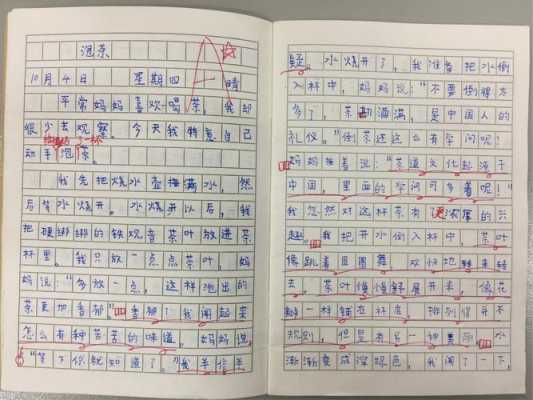 泡茶
10月4日 星期四 晴
平常妈妈喜欢喝茶，我却
很少去观察。今天我特意自己
动手泡茶。
我先把烧水壶接满水，然
后等水烧开。水烧开以后，我
把硬绑绑的铁观音茶叶放进茶
杯里。我只放一点点茶叶，妈
妈说：“多放一点，这样泡出的
茶更加香郁。”香郁？我闻起来
怎么有种苦苦的味道。妈妈说：
“等下你就知道了。”我半信半
疑。水烧开了，我准备把水倒
入杯中，妈妈说：“不要倒得太
多了，茶满，是中国人的
礼仪。”倒茶还这么有学问呢！
妈妈接着说：“茶道文化起源于
中国，里面的学问可多着呢！”
我忽然对这杯茶有了更浓厚的兴
趣。我把开水倒入杯中，茶叶
像跳着圆圈舞，欢快地转来转
去。茶叶慢慢舒展开来，像花
一样铺在杯底，排列得不
规则，但是有另一种美丽。水
渐渐变成深绿色，我闻了一下，